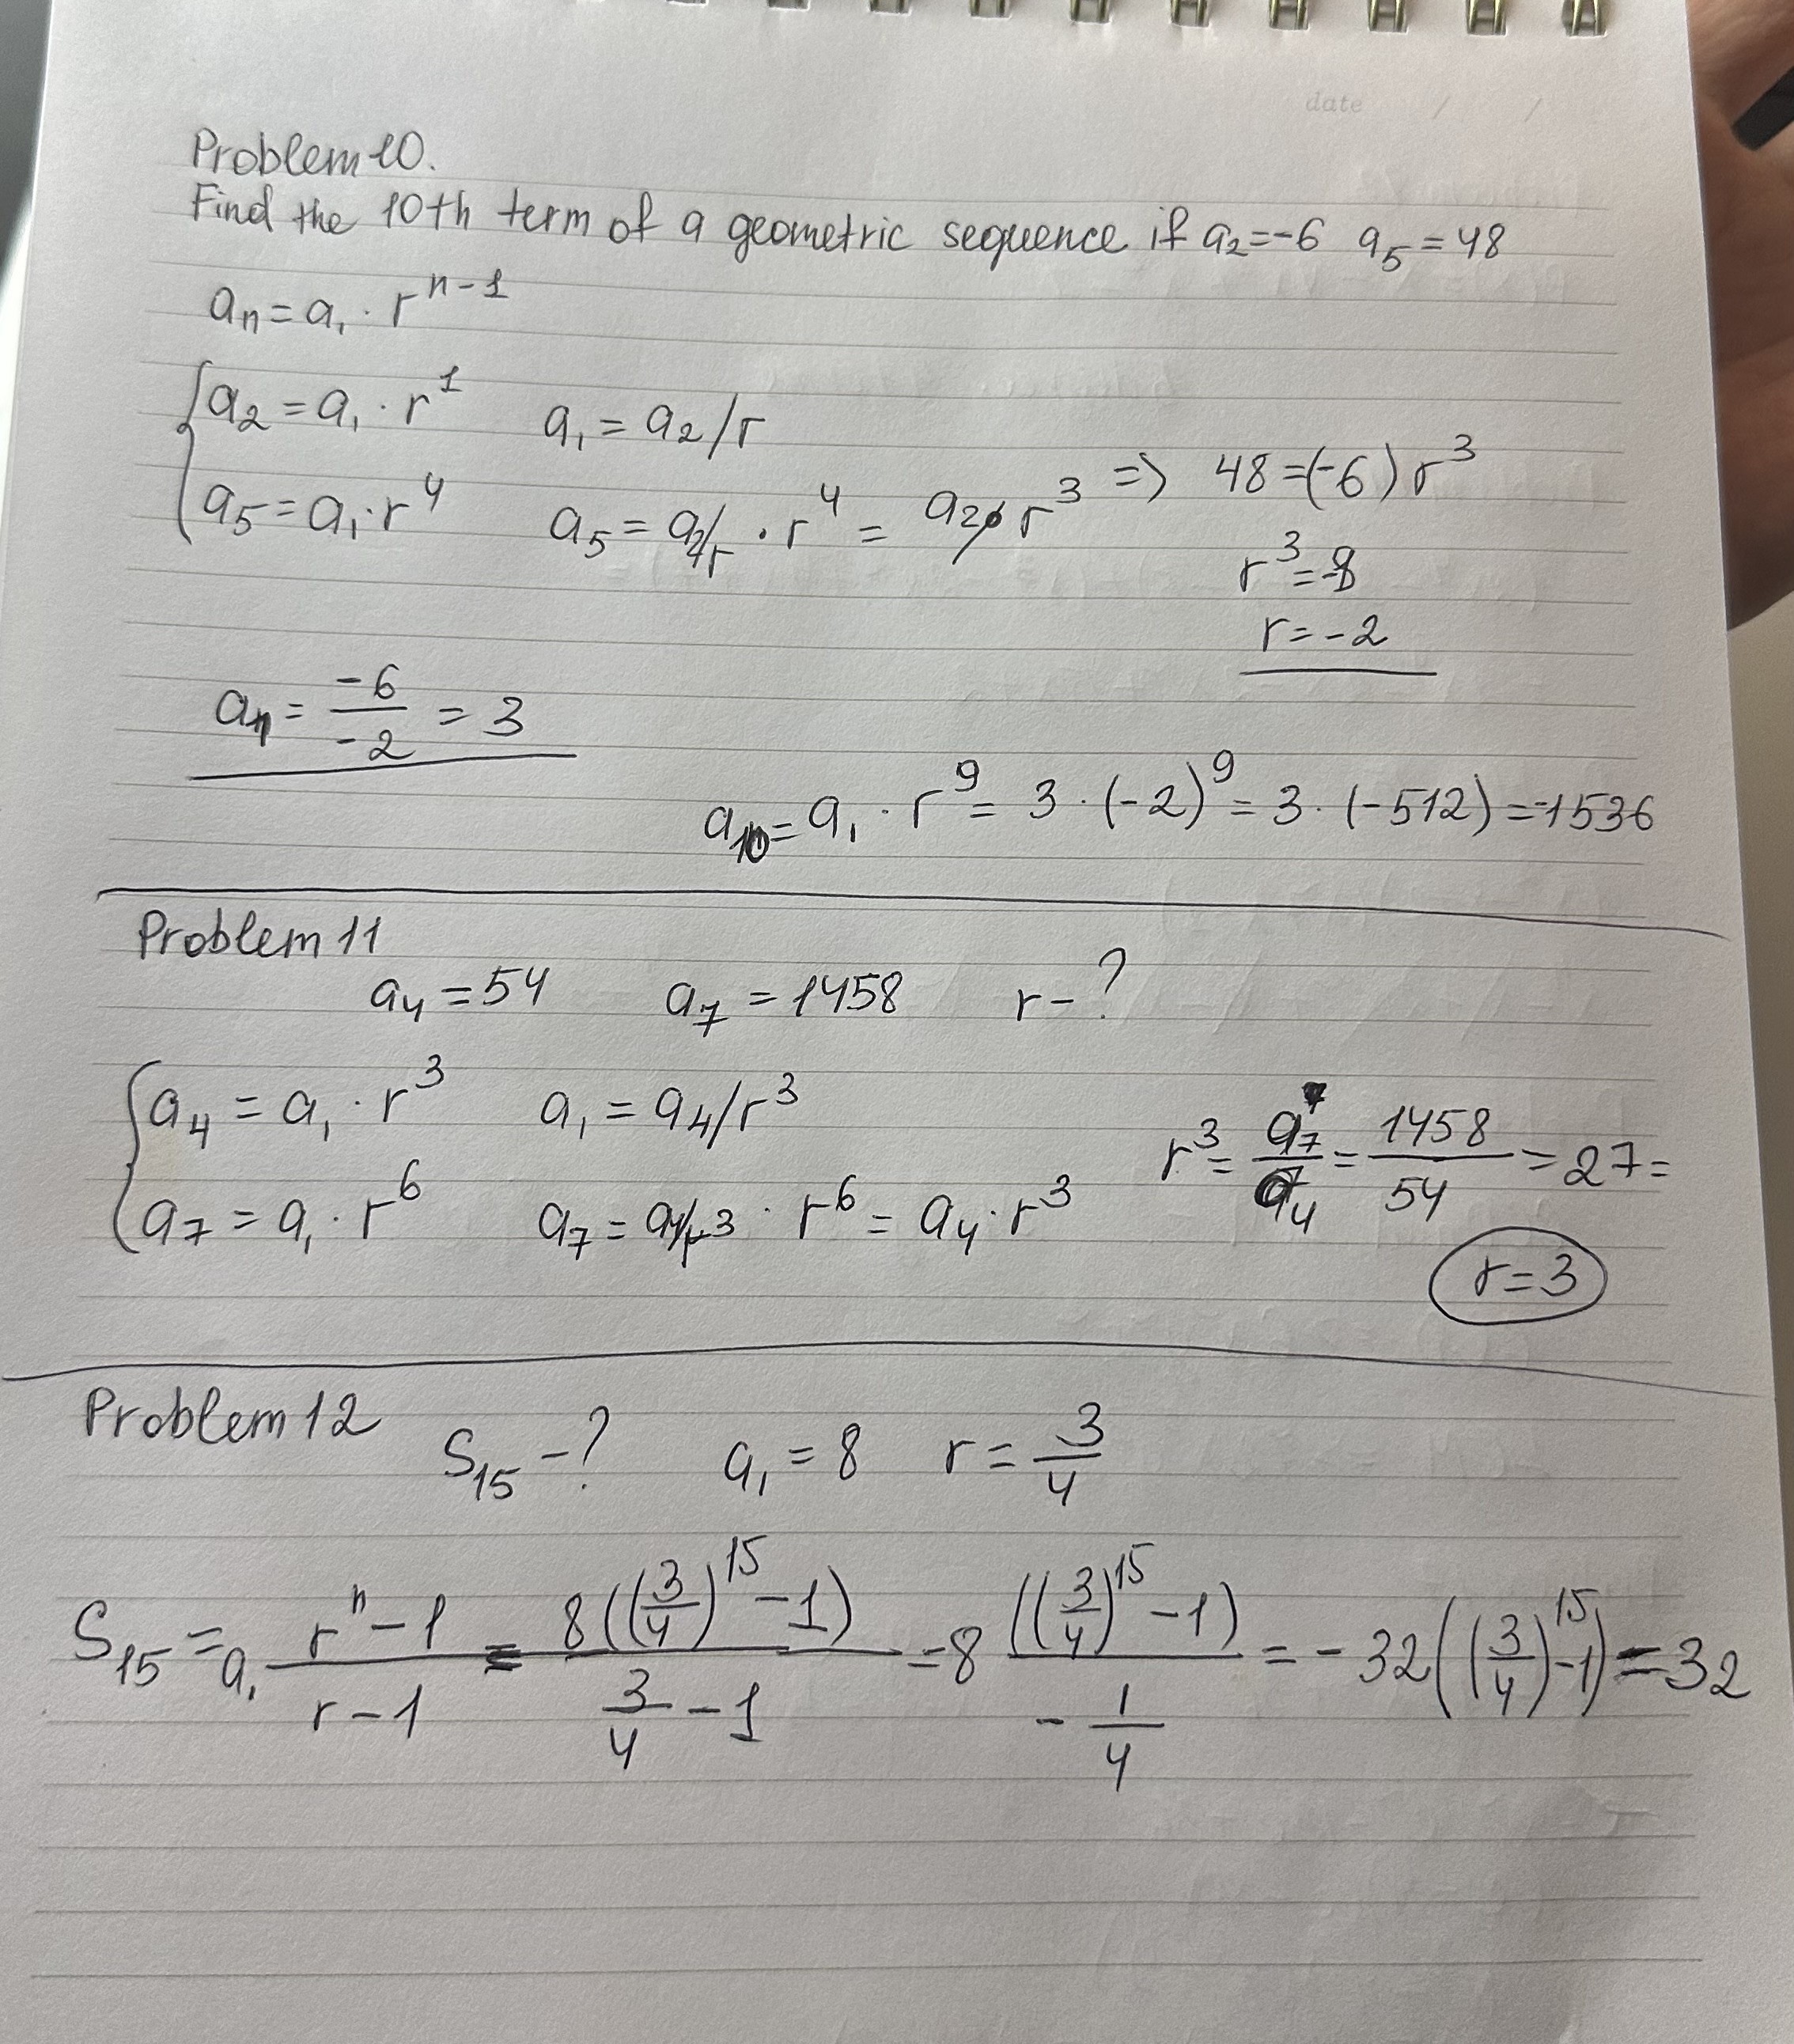 date / /
Problem 10.
Find the 10th term of a geometric sequence if a₂=-6 a₅=48
aₙ=a₁·rⁿ⁻¹
a₂=a₁·r¹ a₁=a₂/r
a₅=a₁·r⁴ a₅=a₂/r·r⁴=a₂r³ => 48=(-6)r³
r³=-8
r=-2
a₁=-6/-2=3
a₁₀=a₁·r⁹=3·(-2)⁹=3·(-512)=-1536
Problem 11
a₄=54 a₇=1458 r-?
a₄=a₁·r³ a₁=a₄/r³
r³=a₇/a₄=1458/54=27=
a₇=a₁·r⁶ a₇=a₄/r³·r⁶=a₄·r³
r=3
Problem 12
S₁₅-? a₁=8 r=3/4
S₁₅=a₁ (rⁿ-1)/(r-1) = 8((3/4)¹⁵-1)/(3/4-1) = 8 ((3/4)¹⁵-1)/(-1/4) = -32((3/4)¹⁵-1)=32